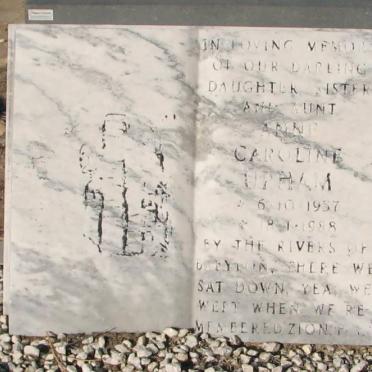 IN LOVING MEMO
OF OUR DARLING
DAUGHTER SISTER
AND AUNT
CAROLINE
6.10.1957
1.1988
BY THE RIVERS OF
THERE WE
SAT DOWN, YEA, WE
WEPT WHEN WE RE
MEMBERED ZION